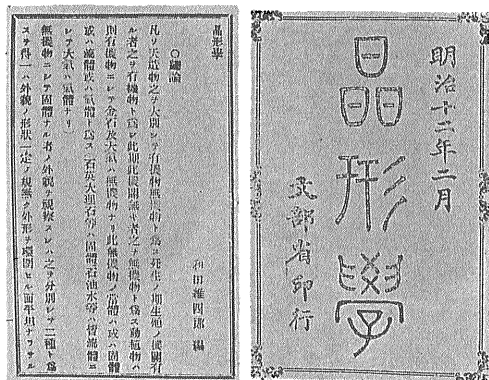 明治十二年二月
晶形學
文部省印行
晶形學
○總論
和田維四郎 編
凡ソ天造物之ヲ大別シテ有機物無機物ト爲ス死生ノ期生殖ノ機關有
ル者之ヲ有機物ト爲シ此期此機關無キ者之ヲ無機物ト爲ス動植物ハ
則有機物ニシテ金石及大氣ハ無機物ナリ此無機物ノ常體ハ或ハ固體
或ハ流體或ハ氣體ト爲ス石英大理石等ハ固體石油水等ハ皆流體ニ
シテ大氣ハ氣體ナリ
無機物ニシテ固體ナル者ノ外觀ヲ視察スレハ之ヲ分別シテ二種ト爲
スヲ得一ハ外貌ノ形狀一定ノ規無ク外形ヲ構閉セル面平坦ナラサル